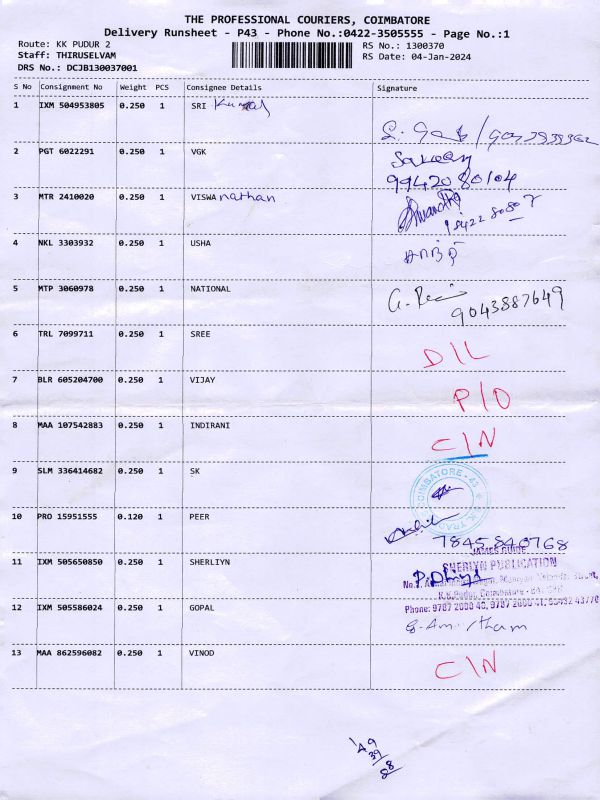 THE PROFESSIONAL COURIERS, COIMBATORE
Delivery Runsheet - P43 - Phone No.:0422-3505555 - Page No.:1
Route: KK PUDUR 2 RS No.: 1300370
Staff: THIRUSELVAM RS Date: 04-Jan-2024
DRS No.: DCJB130037001
S No Consignment No Weight PCS Consignee Details Signature
1 IXM 504953805 0.250 1 SRI
2 PGT 6022291 0.250 1 VGK
9942080104
3 MTR 2410020 0.250 1 VISWAnathan
4 NKL 3303932 0.250 1 USHA
5 MTP 3060978 0.250 1 NATIONAL
9043887649
6 TRL 7099711 0.250 1 SREE
D/L
7 BLR 605204700 0.250 1 VIJAY
P/O
8 MAA 107542883 0.250 1 INDIRANI
C/N
9 SLM 336414682 0.250 1 SK
COIMBATORE - 43
10 PRO 15951555 0.120 1 PEER
7845840768
JAMES GUIDE
11 IXM 505650850 0.250 1 SHERLIYN
SHERLYN PUBLICATION
P. Dhivya
12 IXM 505586024 0.250 1 GOPAL
13 MAA 862596082 0.250 1 VINOD
C/N
49
39
88